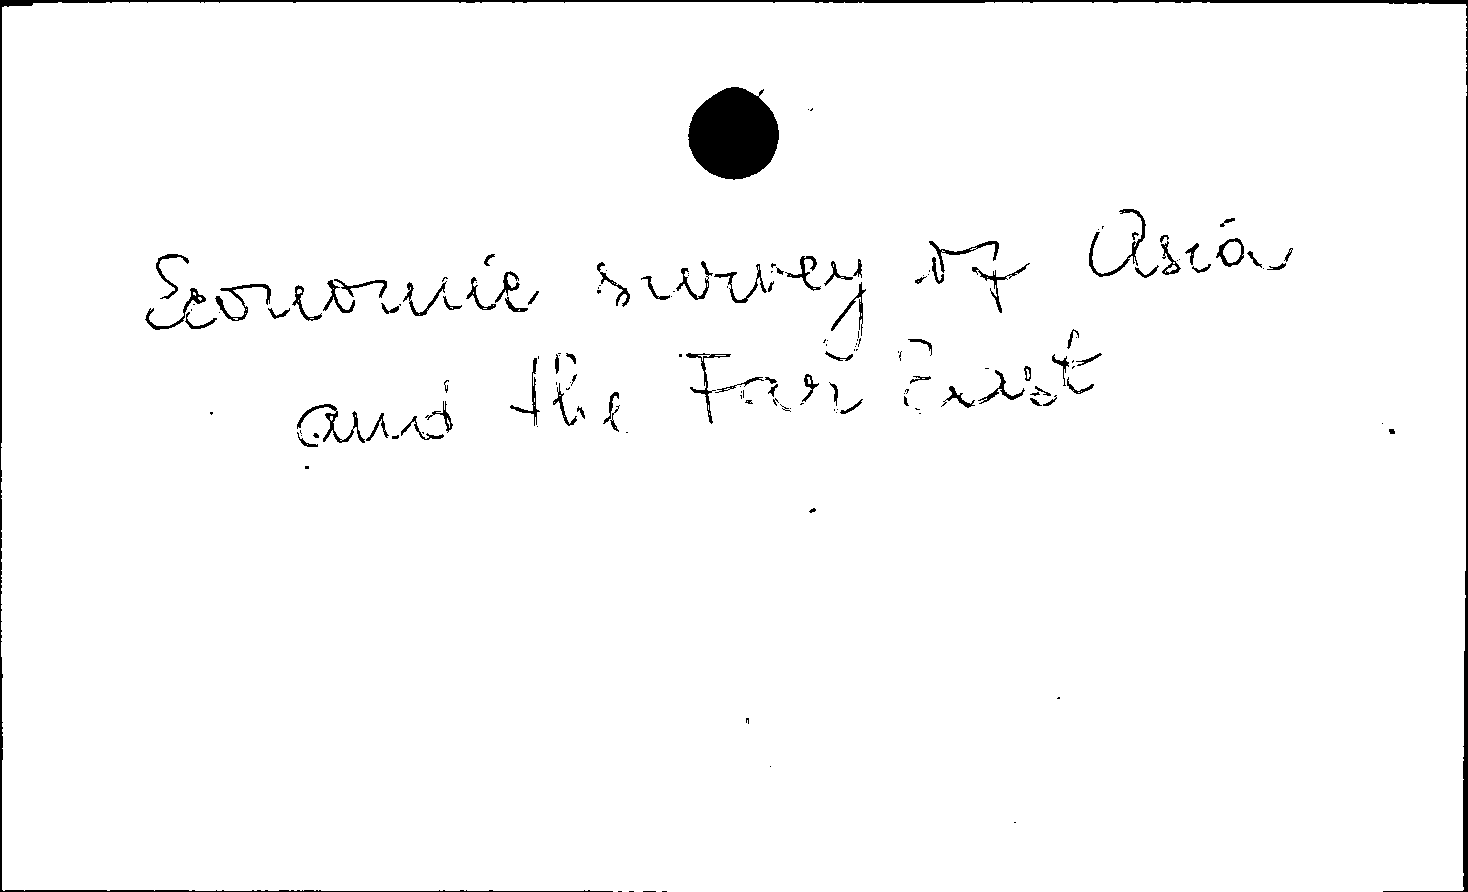 Economic survey of Asia
and the Far East